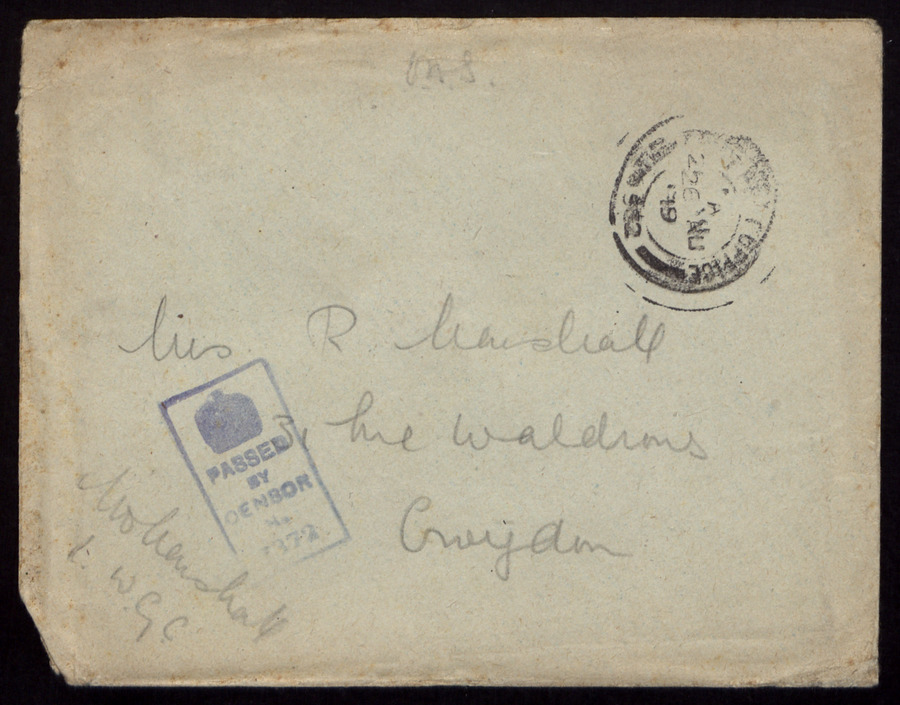 O.A.S.
POST OFFICE
22 JA
19
Mrs R Marshall
3, The Waldrons
Croydon
PASSED
BY
CENSOR
No
Marshall
W.G.C.